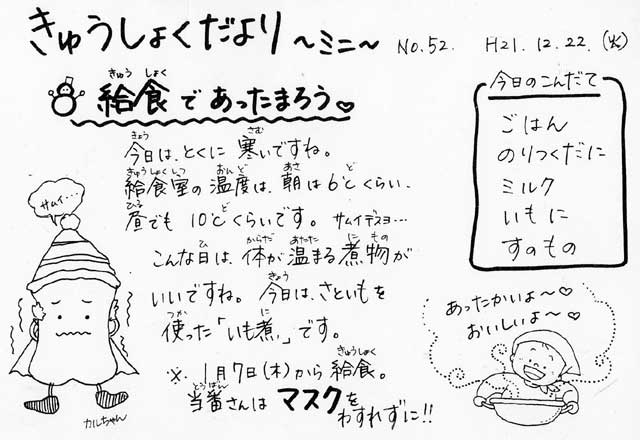 きゅうしょくだより ～ミニ～ No.52. H21.12.22.(火)
給食であったまろう♡
きゅう しょく
今日のこんだて
ごはん
のりつくだに
ミルク
いもに
すのもの
きょう さむ
今日は、とくに寒いですね。
きゅうしょくしつ おんど あさ ど
給食室の温度は、朝は6℃くらい、
ひる ど
昼でも10℃くらいです。サムイデスヨ…
ひ からだ あたた にもの
こんな日は、体が温まる煮物が
きょう
いいですね。今日は、さといもを
つか に
使った「いも煮」です。
きゅうしょく
※1月7日(木)から給食。
とうばん
当番さんはマスクをわすれずに!!
サムイ…
カルちゃん
あったかいよ～♡
おいしいよ～